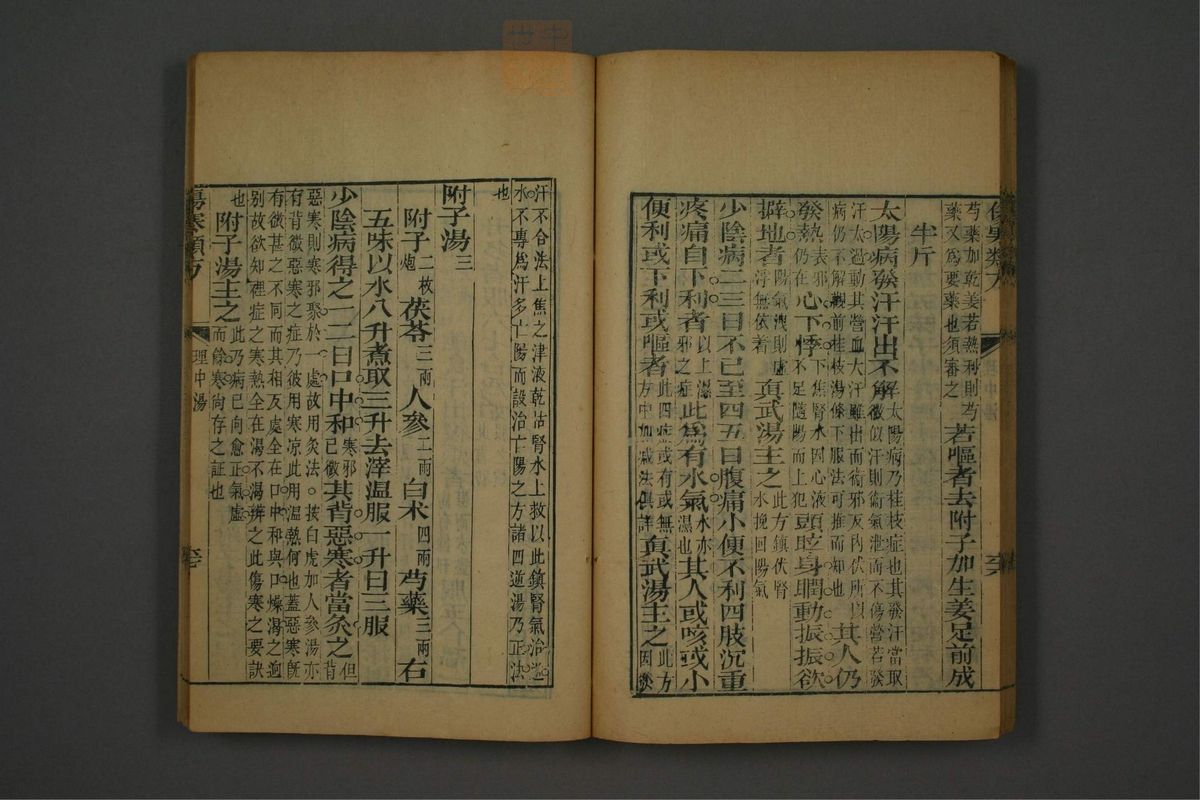 傷寒類方
芍藥加乾姜若熱利則芍藥又爲要藥也須審之若嘔者去附子加生姜足前成
半斤
太陽病發汗汗出不解太陽病乃桂枝症也其發汗當取微似汗則衛氣泄而不傷營若發
汗太過動其營血大汗雖出而衛邪反內伏所以病仍不解觀前桂枝湯條下服法可推而知也其人仍
發熱表邪仍在心下悸下焦腎水因心液不足隨陽而上犯頭眩身瞤動振振欲
擗地者陽氣洩則虛浮無依着真武湯主之此方鎮伏腎水挽回陽氣
少陰病二三日不已至四五日腹痛小便不利四肢沉重
疼痛自下利者以上濕邪之症此爲有水氣水亦濕也其人或咳或小
便利或下利或嘔者此四症或有或無方中加減法俱詳真武湯主之此方因發
汗不合法上焦之津液乾沽腎水上救以此鎮腎氣治逆
水不專爲汗多亡陽而設治亡陽之方諸四逆湯乃正法
也
附子湯三
附子二枚炮茯苓三兩人參二兩白术四兩芍藥三兩右
五味以水八升煮取三升去滓溫服一升日三服
少陰病得之一二日口中和寒邪已微其背惡寒者當灸之但背
惡寒則寒邪聚於一處故用灸法。按白虎加人參湯亦
有背微惡寒之症乃彼用寒凉此用溫熱何也蓋惡寒旣
有微甚之不同而其相反處全在口中和與口燥渴之逈
別故欲知裡症之寒熱全在渴不渴辨之此傷寒之要訣
也附子湯主之此乃病已向愈正氣虛而餘寒尙存之証也
傷寒類方
理中湯